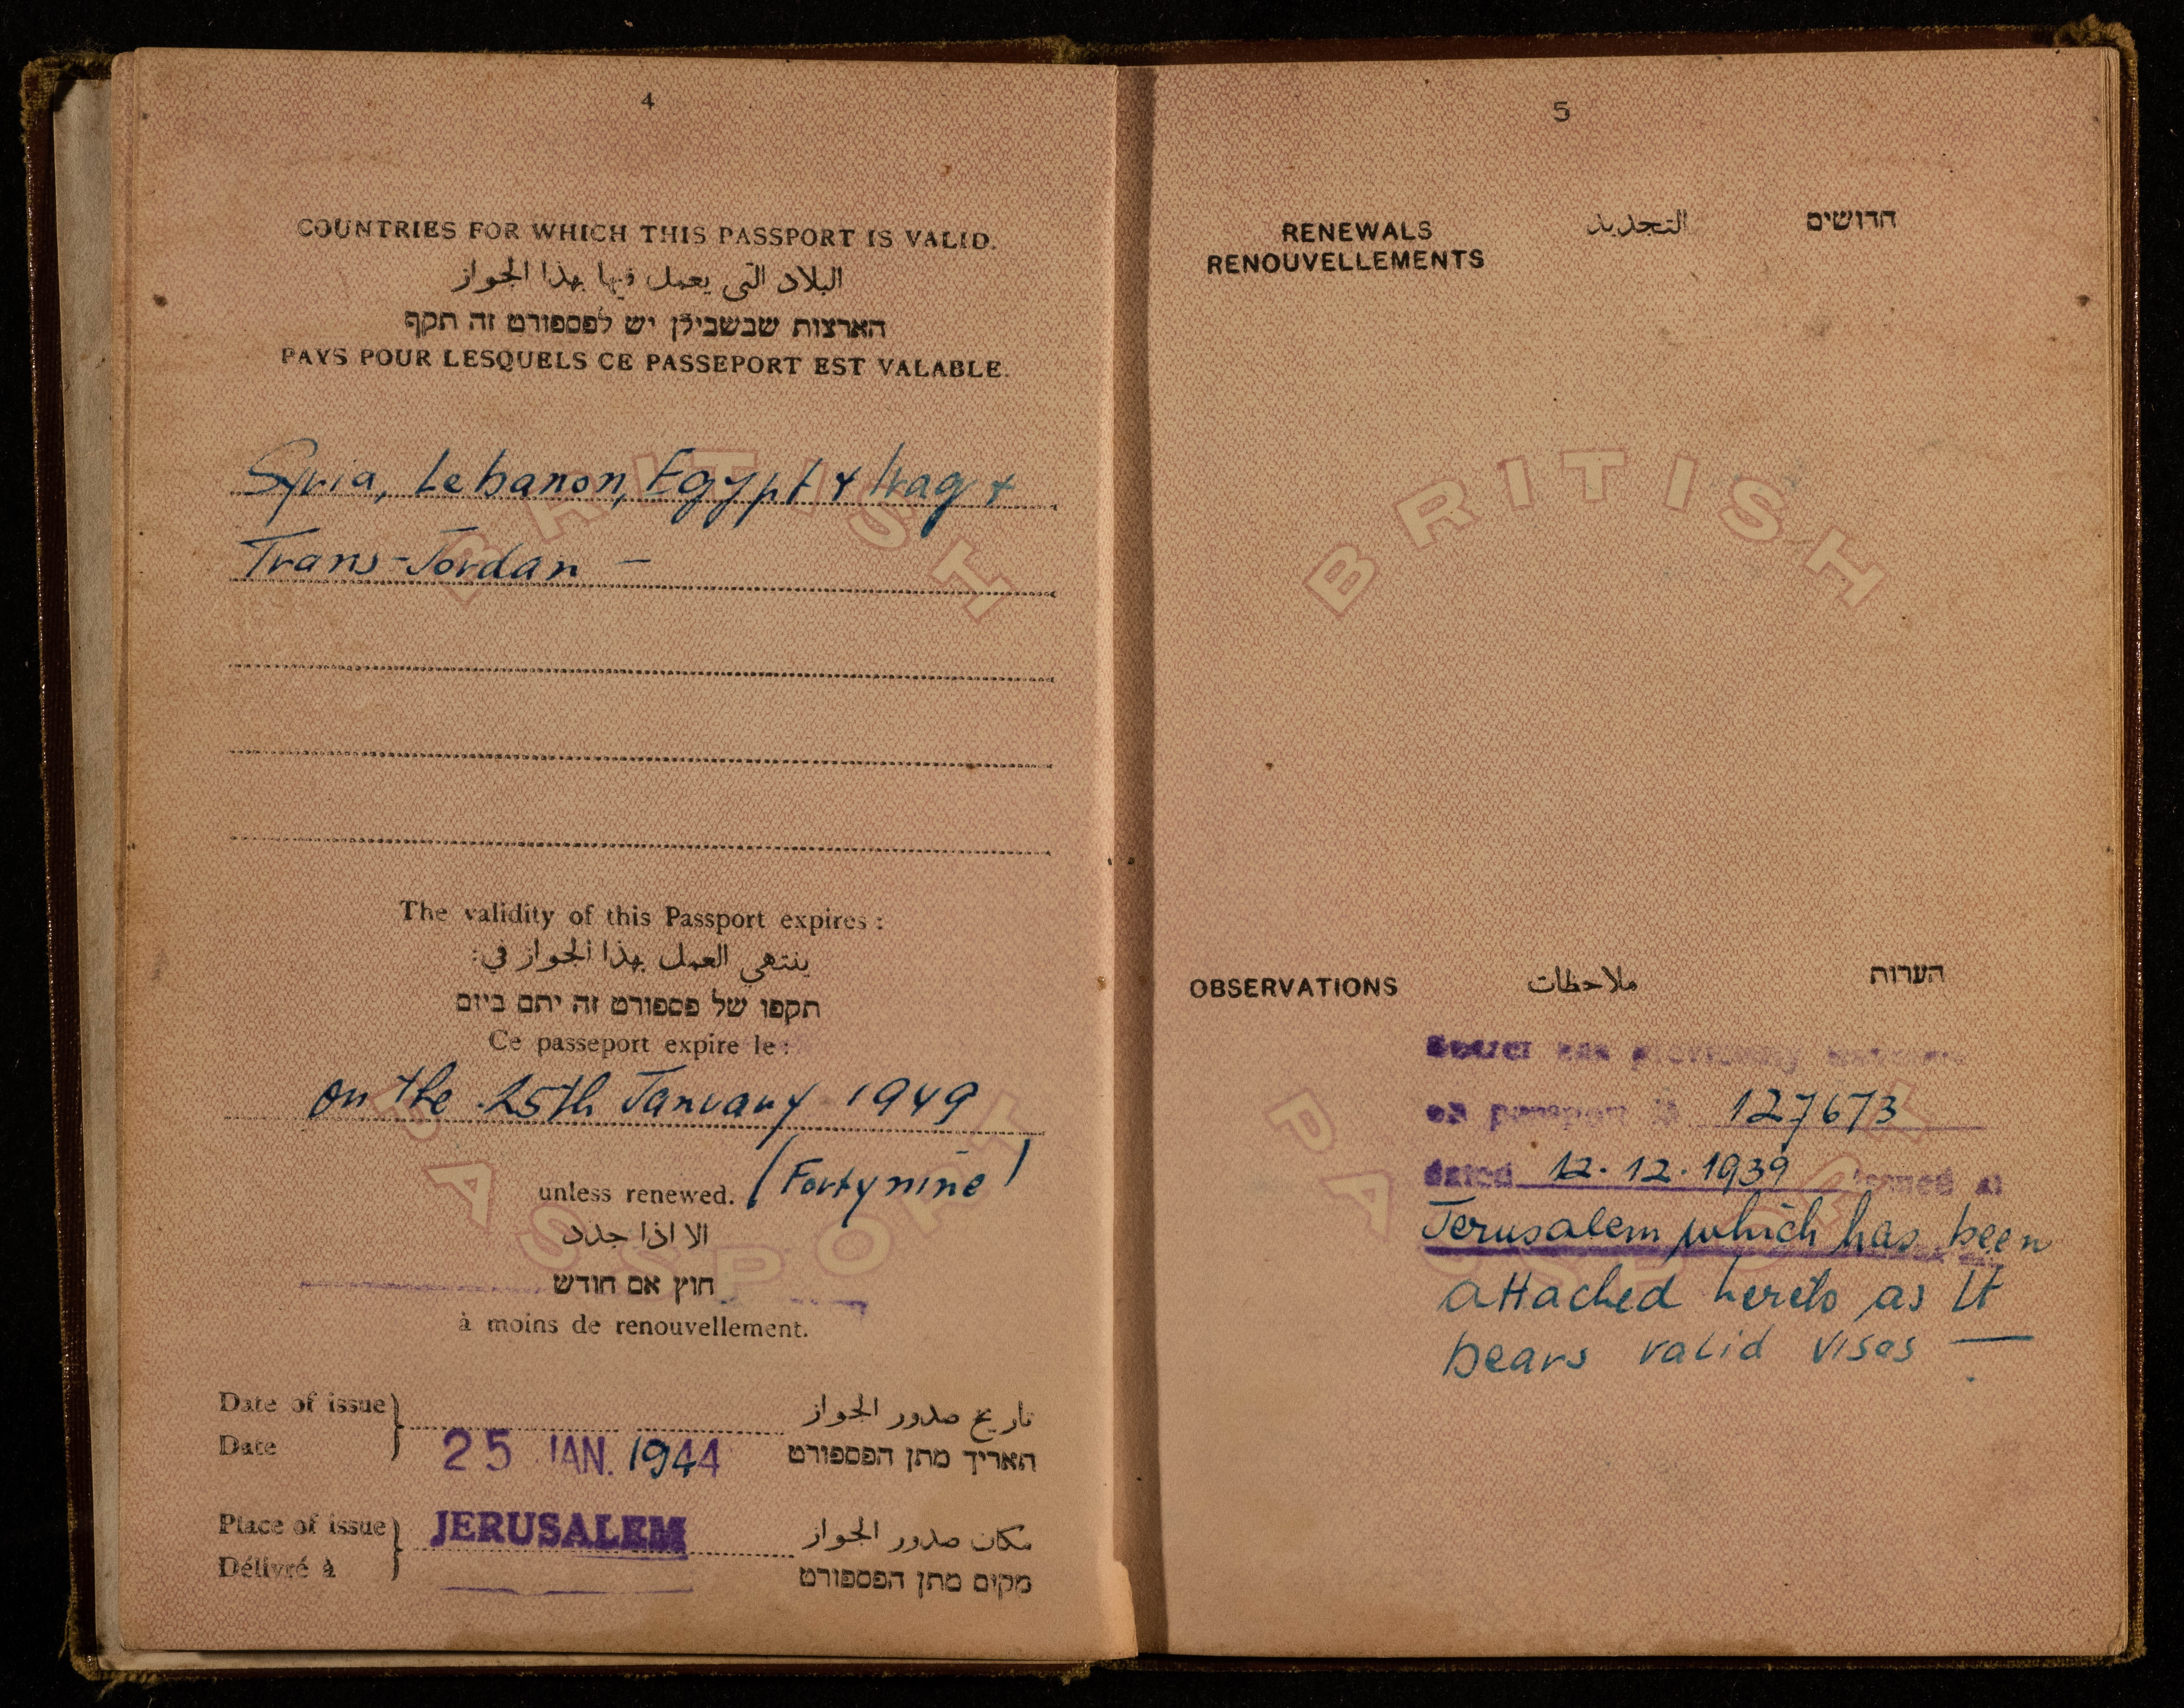 4
COUNTRIES FOR WHICH THIS PASSPORT IS VALID.
البلاد التى يعمل فيها بهذا الجواز
הארצות שבשבילן יש לפספורט זה תקף
PAYS POUR LESQUELS CE PASSEPORT EST VALABLE.
Syria, Lebanon, Egypt & Iraq &
Trans-Jordan —
The validity of this Passport expires :
ينتهي العمل بهذا الجواز في:
תקפו של פספורט זה יתם ביום
Ce passeport expire le :
on the 25th January 1949
unless renewed. (Fortynine)
الا اذا جدد
חוץ אם חודש
à moins de renouvellement.
Date of issue تاريخ صدور الجواز
Date 25 JAN. 1944 תאריך מתן הפספורט
Place of issue JERUSALEM مكان صدور الجواز
Délivré à מקום מתן הפספורט
BRITISH
PASSPORT
5
RENEWALS التجديد חדושים
RENOUVELLEMENTS
BRITISH
OBSERVATIONS ملاحظات הערות
has previously
on passport 127673
dated 12.12.1939 issued at
Jerusalem which has been
attached hereto as It
bears valid visas —
PASSPORT